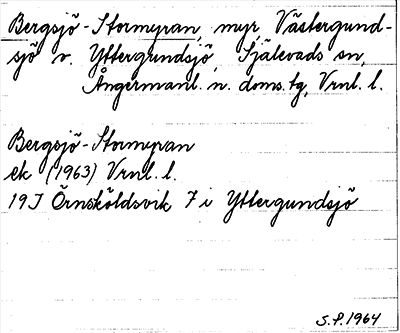 Bergsjö-Stormyran, myr, Västergund-
sjö o. Yttergundsjö, Själevads sn,
Ångermanl. n. doms. tg, Vrnl. l.
Bergsjö-Stormyran
ek (1963) Vrnl. l.
19J Örnsköldsvik 7 i Yttergundsjö
S.P. 1964